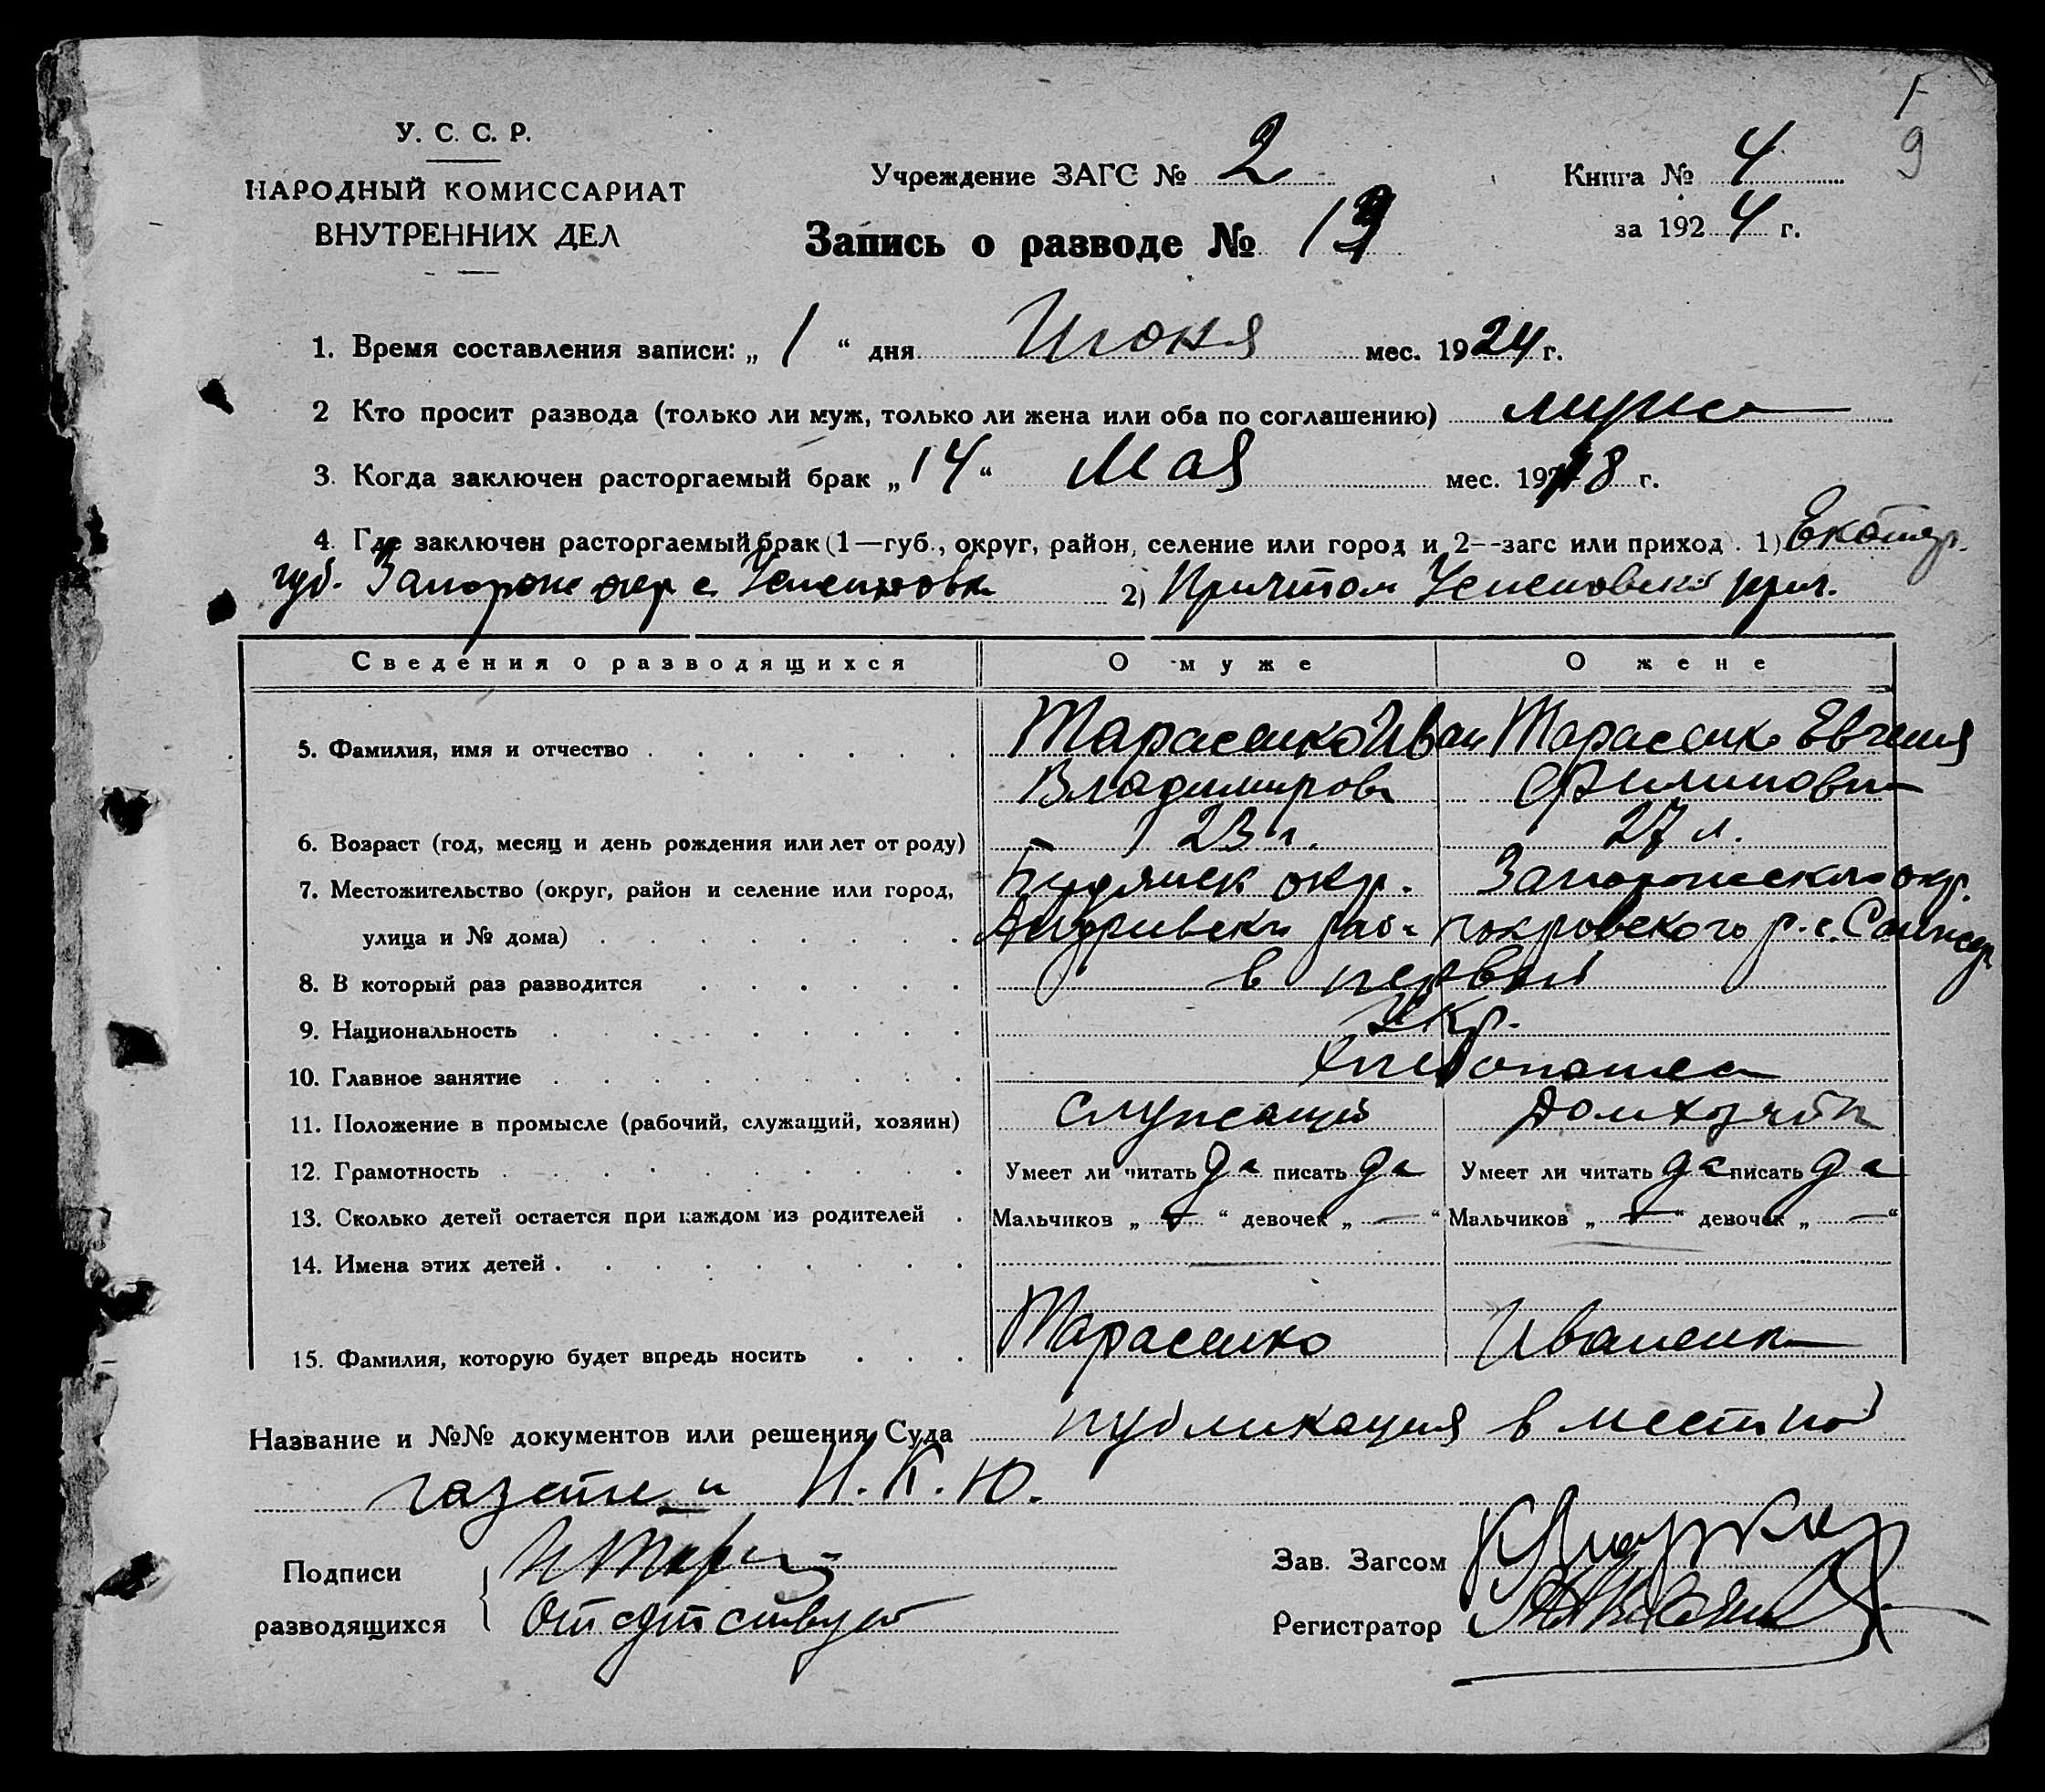 У. С. С. Р.
НАРОДНЫЙ КОМИССАРИАТ
ВНУТРЕННИХ ДЕЛ
Учреждение ЗАГС № 2
Книга № 4
9
за 1924 г.
Запись о разводе № 19
1. Время составления записи: „ 1 “ дня Июня мес. 1924 г.
2 Кто просит развода (только ли муж, только ли жена или оба по соглашению) муж
3. Когда заключен расторгаемый брак „ 14 “ Мая мес. 1918 г.
4. Где заключен расторгаемый брак (1—губ., округ, район, селение или город и 2--загс или приход). 1) Екатер.
губ. Запорож окр с. Успеновка 2) Причтом Успеновской
Сведения о разводящихся О муже О жене
5. Фамилия, имя и отчество Тарасенко Иван Тарасенко Евгения
Владимиров Филипповн
6. Возраст (год, месяц и день рождения или лет от роду) 23 г. 27 л.
7. Местожительство (округ, район и селение или город, Бердянск окр. Запорожского окр.
улица и № дома) Андриевск покровского р. с.
8. В который раз разводится в первый
9. Национальность Укр.
10. Главное занятие хлебопашест
11. Положение в промысле (рабочий, служащий, хозяин) служащий домхозяйк
12. Грамотность Умеет ли читать да писать да Умеет ли читать да писать да
13. Сколько детей остается при каждом из родителей Мальчиков „ — “ девочек „ — “ Мальчиков „ — “ девочек „ — “
14. Имена этих детей —
15. Фамилия, которую будет впредь носить Тарасенко Иваненк
Название и №№ документов или решения Суда публикация в местной
газете и Н. К. Ю.
Подписи
разводящихся отсутствует
Зав. Загсом
Регистратор